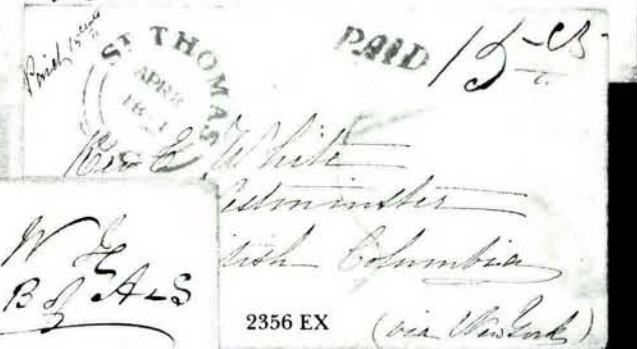 Paid 15 cents
ST THOMAS
APR 8
PAID
15 cts
Rev E. White
estminster
itish Columbia
(via New York)
2356 EX